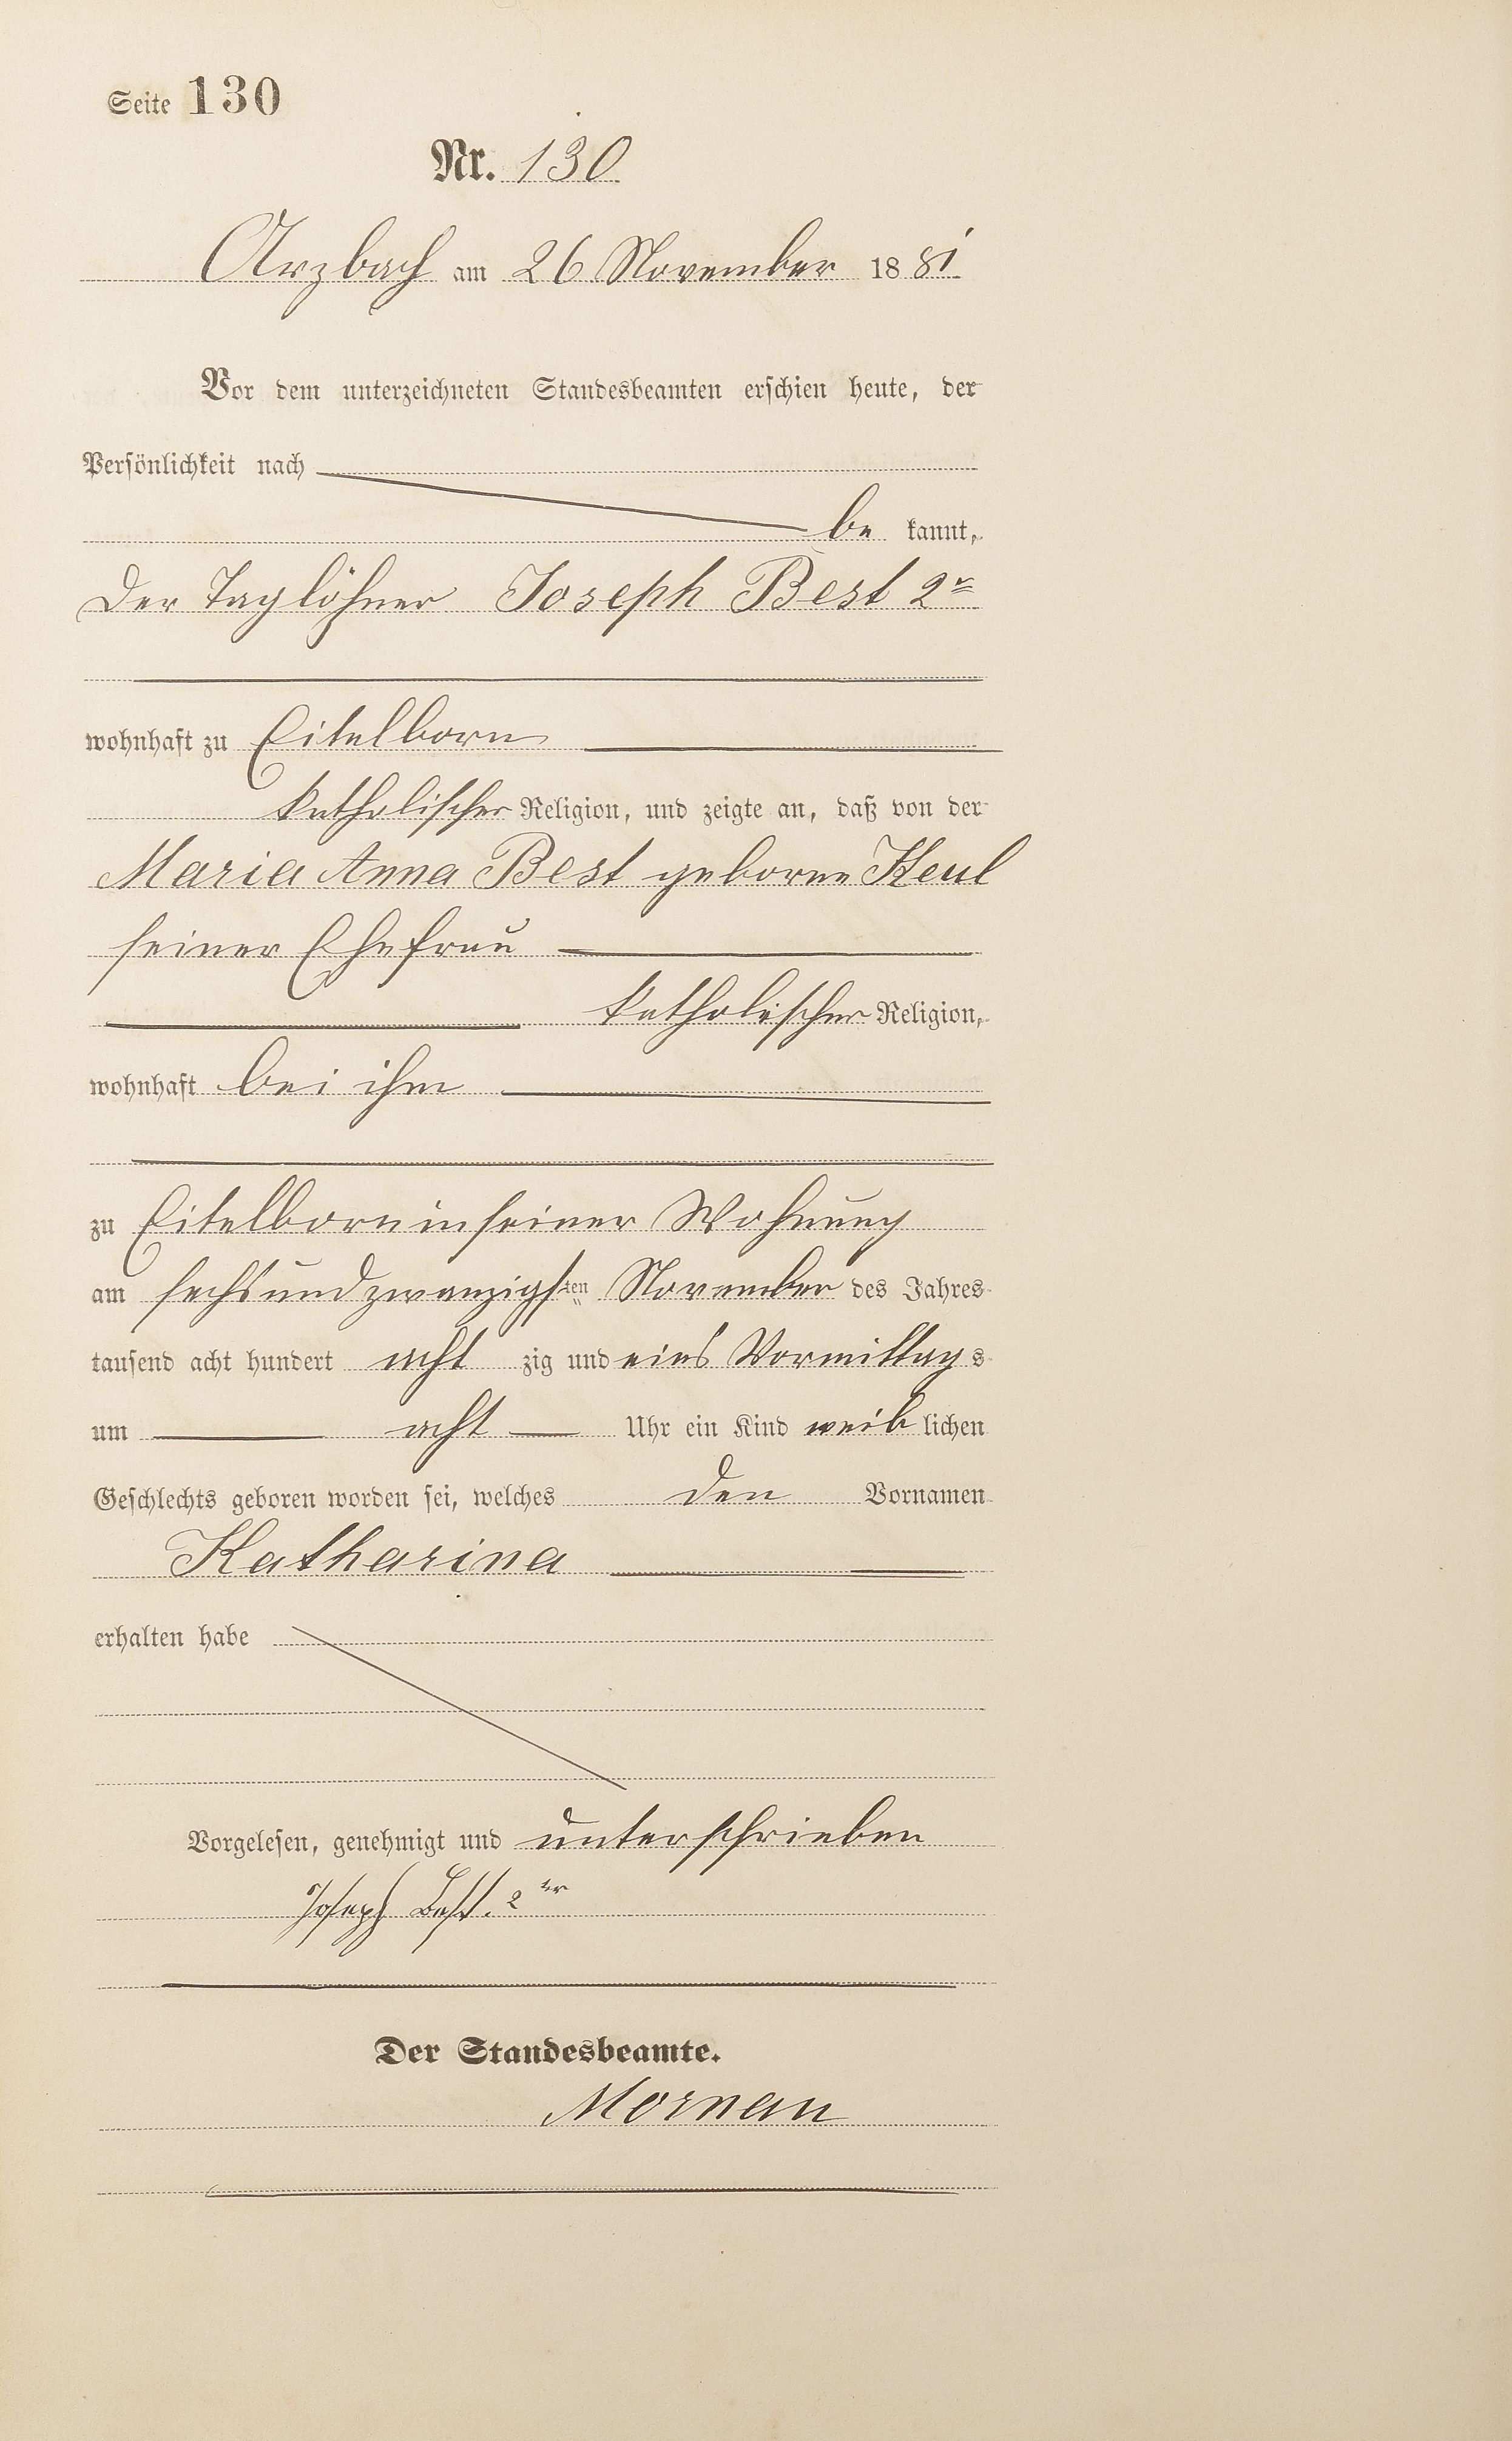 Seite 130
Nr. 130
Arzbach am 26 November 1881
Vor dem unterzeichneten Standesbeamten erschien heute, der
Persönlichkeit nach
be kannt,
der Taglöhner Joseph Best 2r
wohnhaft zu Eitelborn
katholischer Religion, und zeigte an, daß von der
Maria Anna Best geborne Keul
seiner Ehefrau
katholischer Religion,
wohnhaft bei ihm
zu Eitelborn in seiner Wohnung
am sechsundzwanzigsten November des Jahres
tausend acht hundert acht zig und eins Vormittags
um acht Uhr ein Kind weib lichen
Geschlechts geboren worden sei, welches den Vornamen
Katharina
erhalten habe
Vorgelesen, genehmigt und unterschrieben
Joseph Best. 2ter
Der Standesbeamte.
Mornau